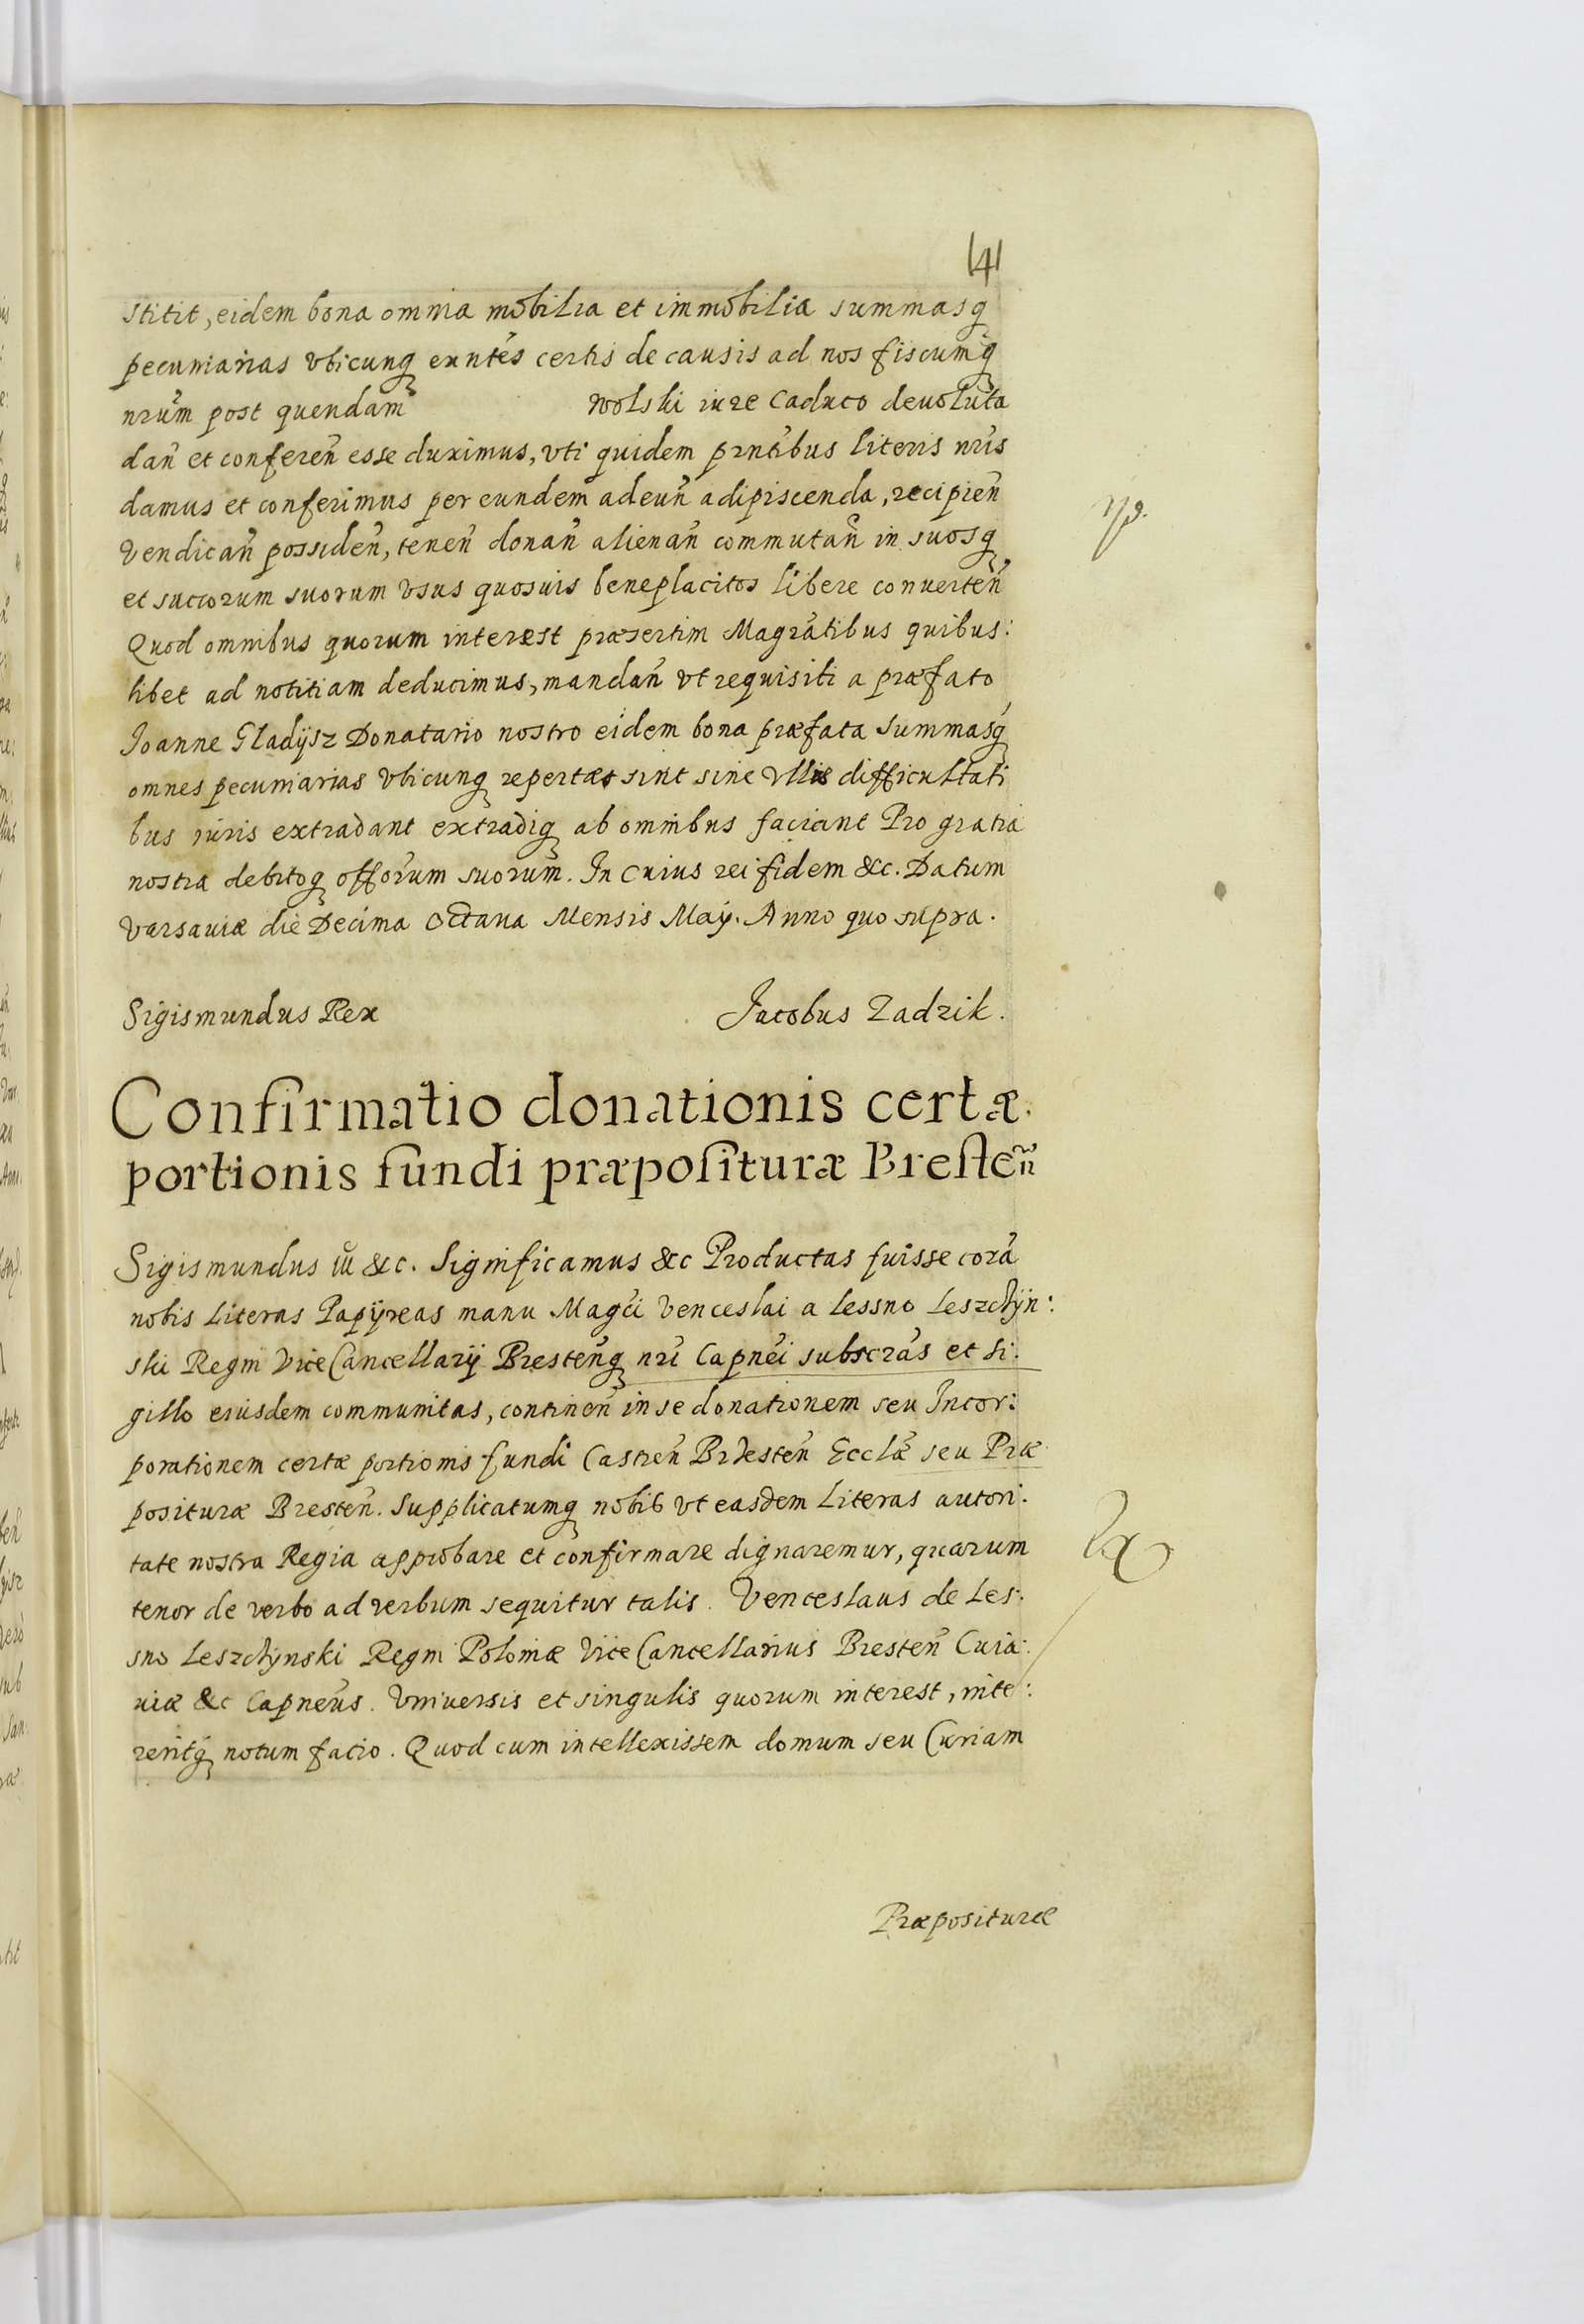 141
stitit, eidem bona omnia mobilia et immobilia summasq́
pecuniarias vbicunq exntēs certis de causis ad nos fiscumq́
nrūm post quendam Wolski iure Caduco deuoluta
dañ et confereñ esse duximus, vti quidem prntibus literis nrīs
damus et conferimus per eundem adeuñ adipiscenda, recipieñ
vendicañ possideñ, teneñ donañ alienañ commutañ in suosq
et succorum suorum vsus quosuis beneplacitos libere conuerteñ
Quod omnibus quorum interest præsertim Magrātibus quibus:
libet ad notitiam deducimus, mandañ vt requisiti a præfato
Joanne Gladÿsz Donatario nostro eidem bona præfata summasq́
omnes pecuniarias vbicunq repertæ sint sine vllis difficultati
bus iuris extradant extradiq ab omnibus faciant Pro gratia
nostra debitoq offōrum suorum. In cuius rei fidem &c. Datum
Varsauiæ die Decima Octaua Mensis Maÿ. Anno quo supra.
Sigismundus Rex Jacobus Zadzik.
Confirmatio donationis certæ
portionis fundi præposituræ Bresteñ
Sigismundus iii &c. Significamus &c Productas fuisse corā
nobis Literas Papÿreas manu Magci Venceslai a Lessno Leszchÿn:
ski Regni ViceCancellarij Bresteñq nrī Capnēi subscrās et si:
gillo eiusdem communitas, contineñ in se donationem seu Incor:
porationem certæ portionis fundi Castreñ Bresteñ Ecclæ seu Præ
posituræ Bresteñ. Supplicatumq nobis vt easdem Literas autori:
tate nostra Regia approbare et confirmare dignaremur, quarum
tenor de verbo ad verbum sequitur talis. Venceslaus de Les:
sno Leszchÿnski Regni Poloniæ ViceCancellarius Bresteñ Cuia:
uiæ &c Capneūs. Vniuersis et singulis quorum interest, inte:
reritq́ notum facio. Quod cum intellexissem domum seu Curiam
Præposituræ